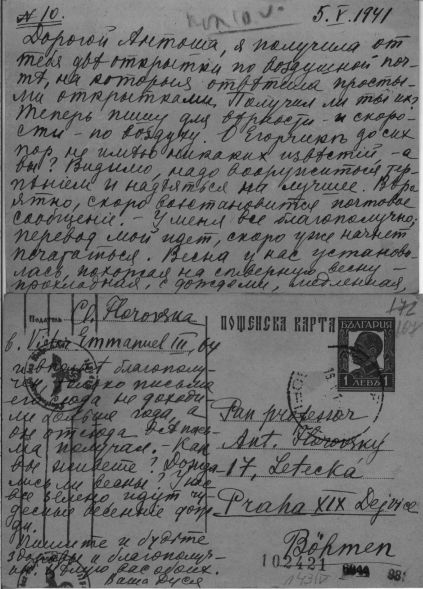 № 10.
5.V.1941
Дорогой Антоша, я получила от
тебя две открытки по воздушной поч-
те, на которыя ответила просты-
ми открытками. Получил ли ты их?
Теперь пишу для верности – и скоро-
сти – по воздуху. О Егорчике до сих
пор не имею никаких известий – а
вы? Видимо, надо вооружиться тер-
пением и надеяться на лучшее. Веро-
ятно, скоро возстановится почтовое
сообщение. – У меня все благополучно;
перевод мой идет, скоро уже начнет
печататься. Весна у нас установи-
лась, похожая на северную весну –
прохладная, с дождями, медленная,
Податель Cl. Florovska
6. Victor Emmanuel III,
благополу-
чно, только письма
его сюда не доходи-
ли больше года, а
он отсюда
ма получал. – Как
вы живете? Дожда-
лись ли весны? У нас
все зелено, идут чу-
десные весенние дож-
ди.
Пишите и будьте
здоровы и благополуч-
ны. Целую вас обоих.
Ваша Дуся
ПОЩЕНСКА КАРТА
БЪЛГАРИЯ
1 ЛЕВЪ 1
Pan professor
Ant. Florovsky
17, Letecka
Praha XIX Dejvice
Böhmen
102421